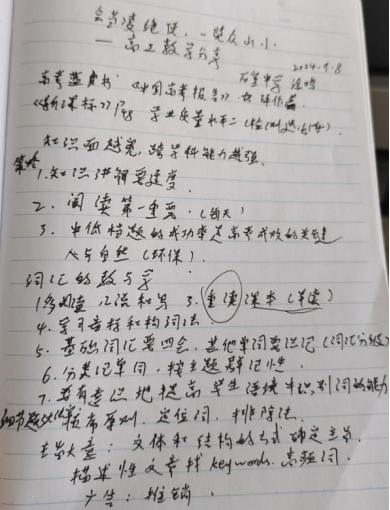 会当凌绝顶，一览众山小。
——高三教学分享
2024.9.8
石室中学
高考蓝皮书 《中国高考报告》
《新课标》P48 学业质量水平二（检测
知识面越宽，跨学科能力越强。
策略 1. 知识讲解要速度
2. 阅读第一重要。（每天）
3. 中低档题的成功率是高考成败的关键
人与自然（环保）
词汇的教与学
1. 2. 3. 重读课本（单读）
4. 学习音标和构词法
5. 基础词汇要四会，其他单词要识记（词汇分级）
6. 分类记单词，按主题群记忆。
7. 要有意识地提高学生语境中识别词的能力
细节题 原则，定位词，排除法
主旨大意：文体和结构的方式确定主旨。
描述性文章找 keywords. 高频词.
广告：推销.